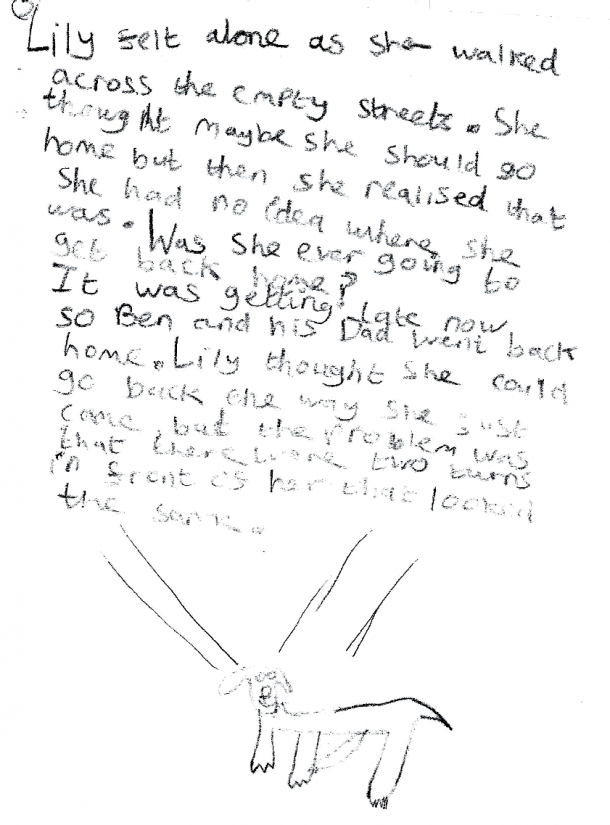 Lily felt alone as she walked
across the empty streets. She
thought maybe she should go
home but then she realised that
She had no idea where she
was. Was She ever going to
get back home?
It was getting late now
so Ben and his Dad went back
home. Lily thought she could
go back the way she just
came, but the problem was
that there were two turns
in front of her that looked
the same.